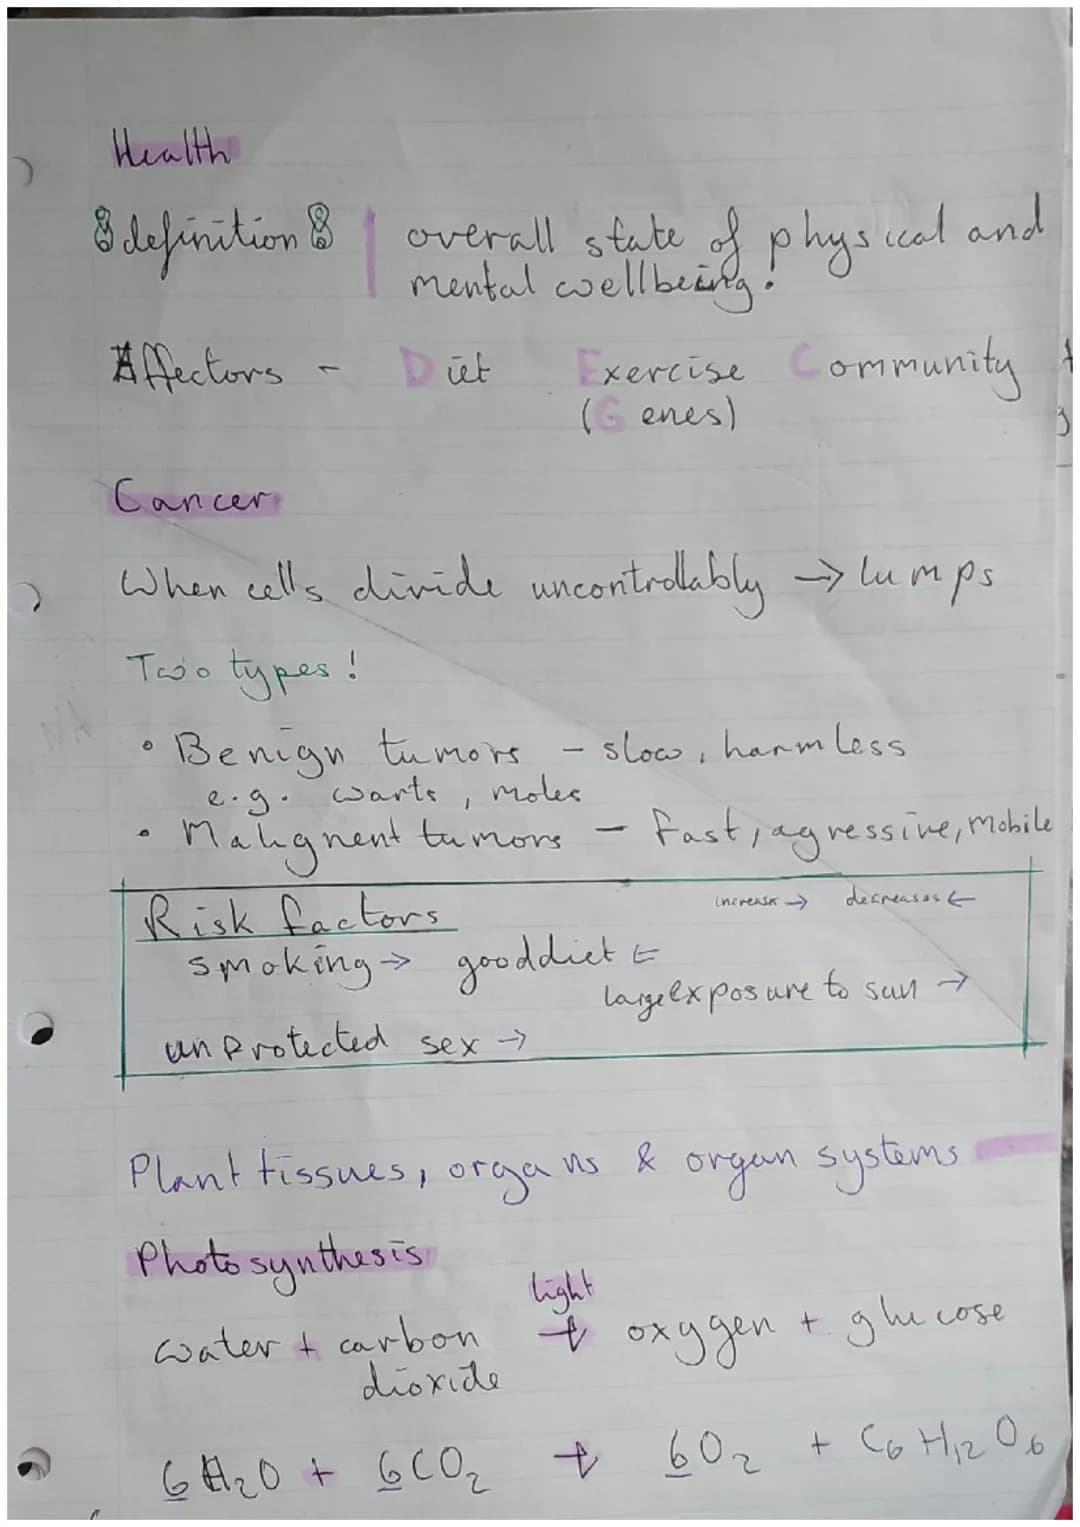 Health
definition | overall state of physical and
mental wellbeing.
Affectors - Diet Exercise Community
(Genes)
Cancer
When cells divide uncontrollably → lumps
Two types!
• Benign tumors - slow, harmless
e.g. warts, moles
• Malignent tumors - fast, agressive, mobile
Risk factors increase → decreases ←
smoking → good diet ←
large exposure to sun →
unprotected sex →
Plant tissues, organs & organ systems
Photosynthesis
light
water + carbon → oxygen + glucose
dioxide
6H₂O + 6CO₂ → 6O₂ + C₆H₁₂O₆